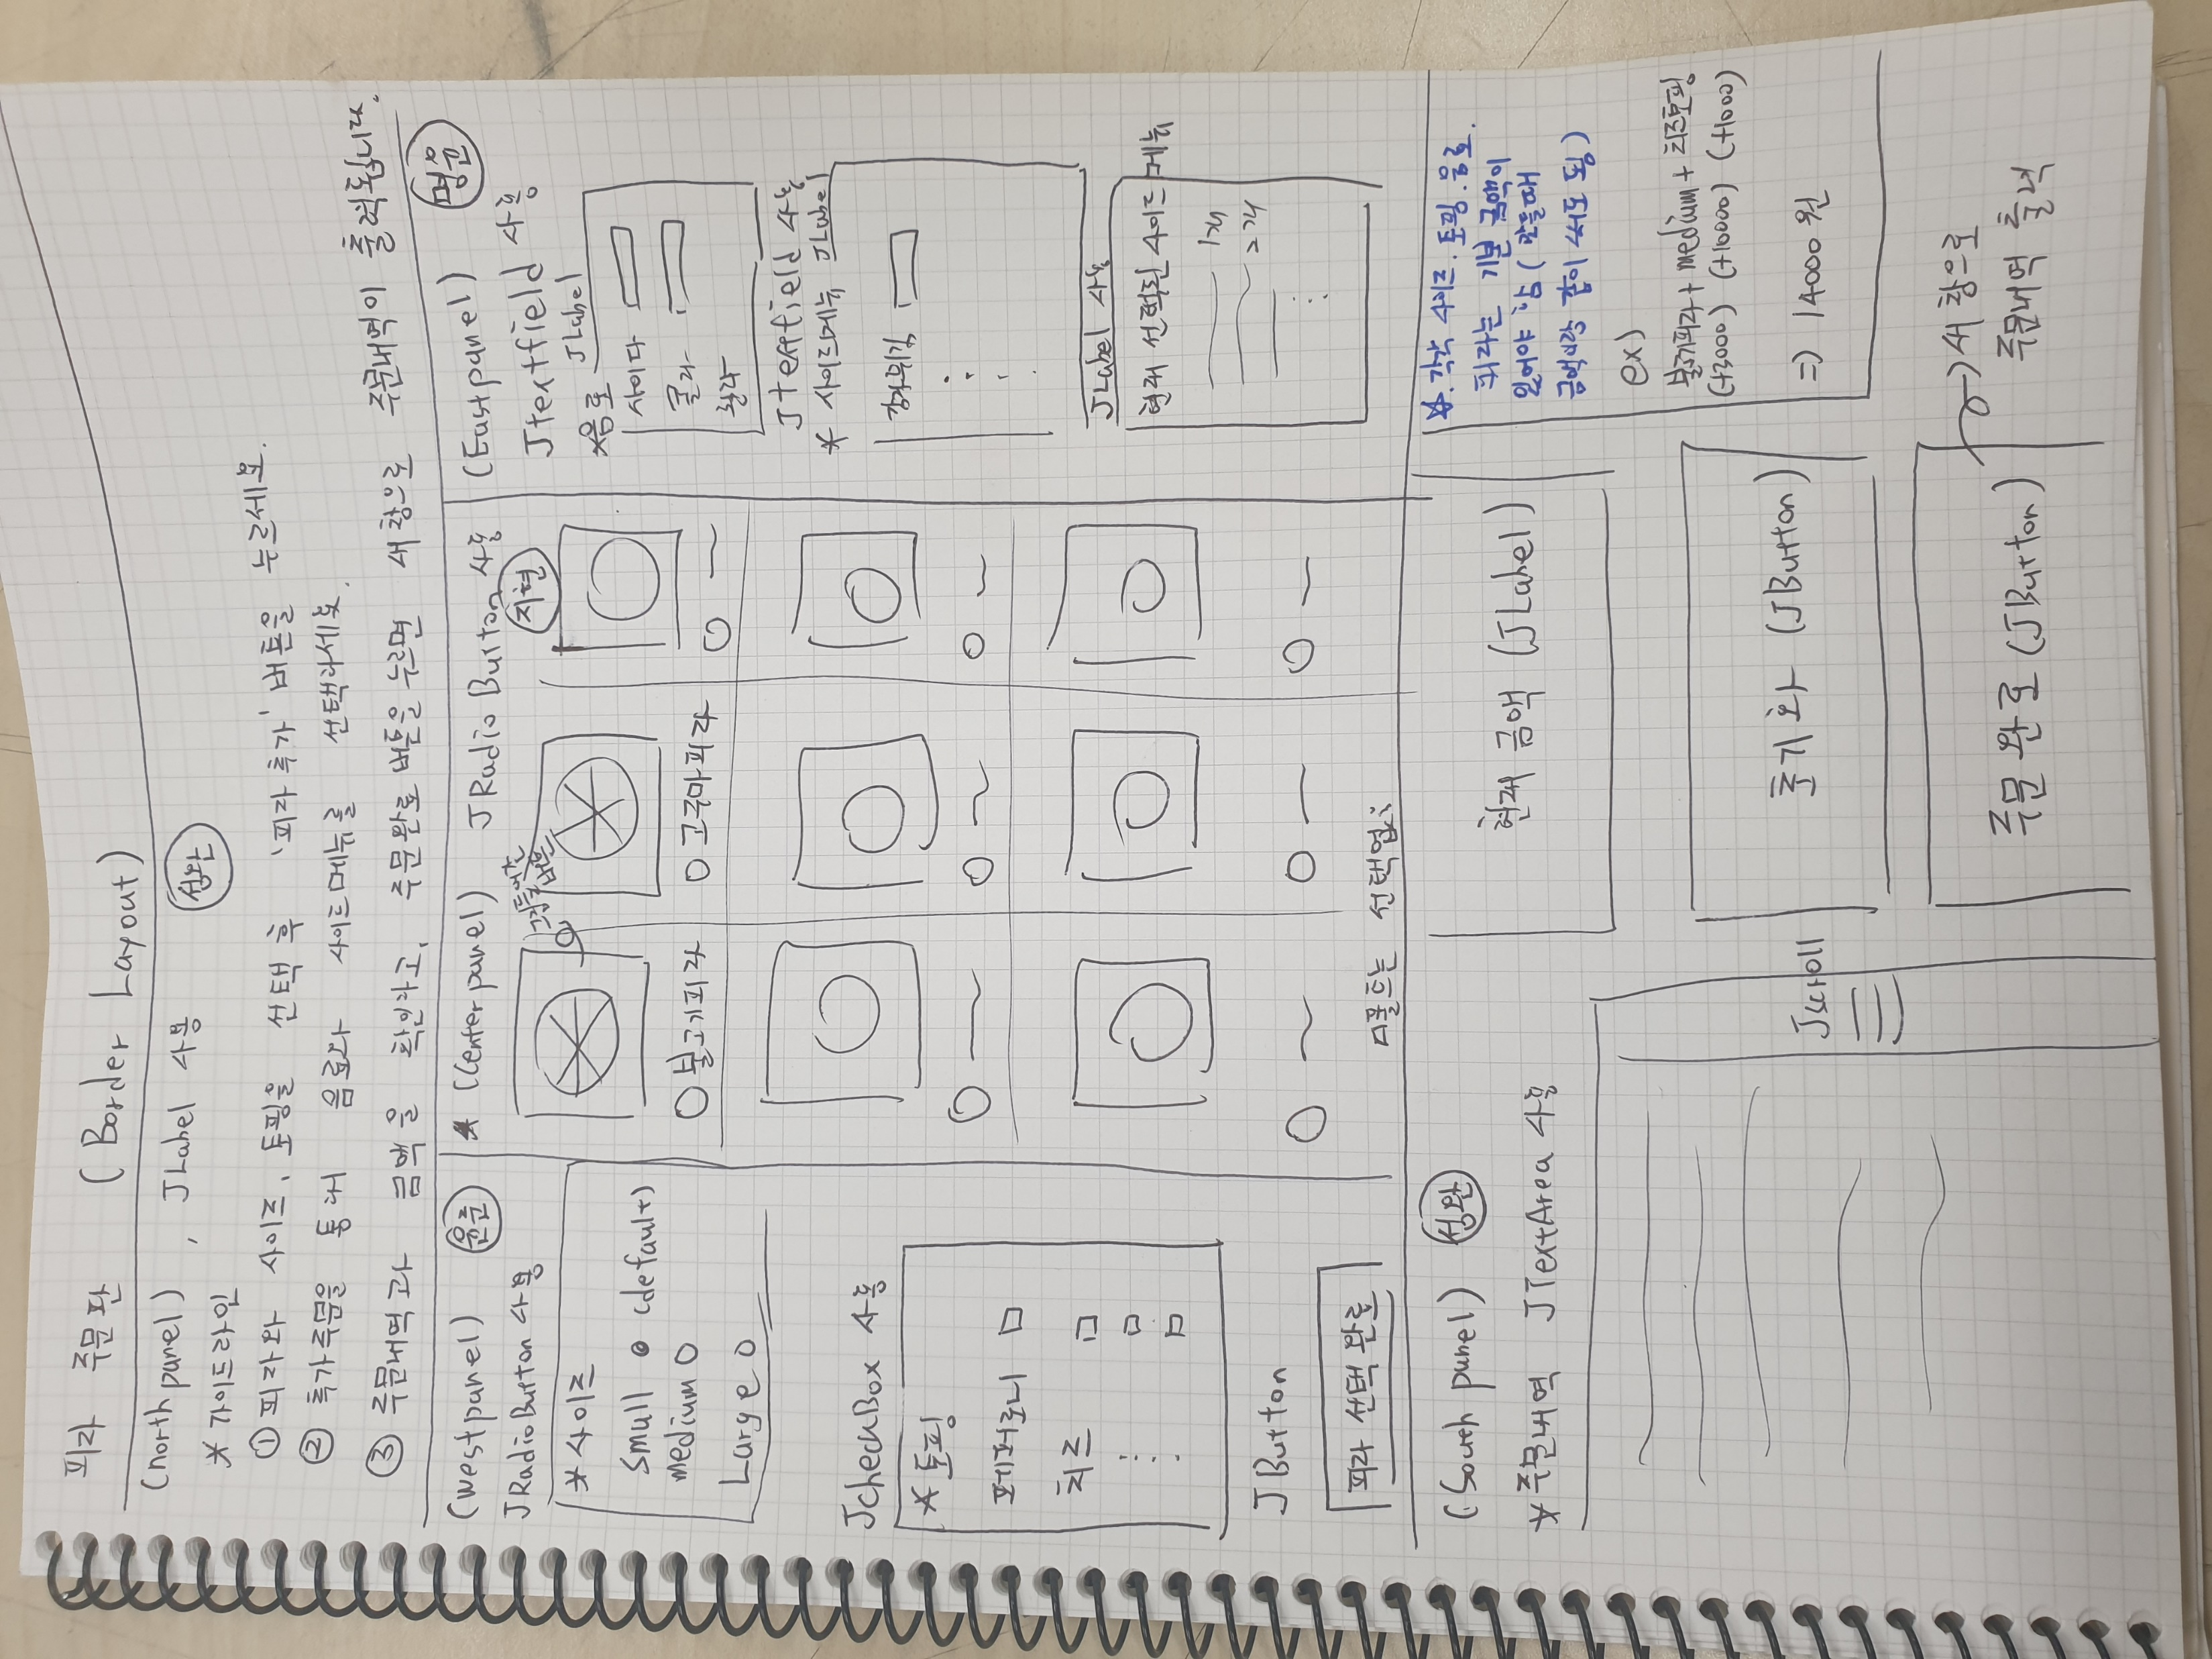 피자 주문판 (Border Layout)
(north panel), JLabel 사용 성완
* 가이드라인
① 피자와 사이즈, 토핑을 선택 후 '피자추가' 버튼을 누르세요.
② 추가주문을 통해 음료와 사이드메뉴를 선택하세요.
③ 주문내역과 금액을 확인하고, 주문완료 버튼을 누르면 새창으로 주문내역이 출력됩니다.
(westpanel) 윤준
JRadioButton 사용
* 사이즈
Small (default)
medium
Large
JcheckBox 사용
* 토핑
페퍼로니
치즈
JButton
피자 선택 완료
* (Center panel) JRadio Button 사용
지현
버튼
불고기피자 고구마피자
디폴트는 선택없음
(East panel) 명윤
Jtextfield 사용
JLabel
*음료
사이다
콜라
환타
Jtextfield 사용
JLabel
* 사이드메뉴
감자튀김
JLabel 사용
현재 선택된 사이드 메뉴
1개
2개
(South panel) 성완
* 주문내역 JTextArea 사용
현재 금액 (JLabel)
초기화 (JButton)
주문 완료 (JButton)
새 창으로
주문내역 출력
*. 각각 사이즈. 토핑. 음료.
피자는 기본 금액이
있어야 함 (만들때
금액이랑 같이 써도 됨)
ex)
불고기피자 + medium + 치즈토핑
(+3000) (+10000) (+1000)
=) 14000원